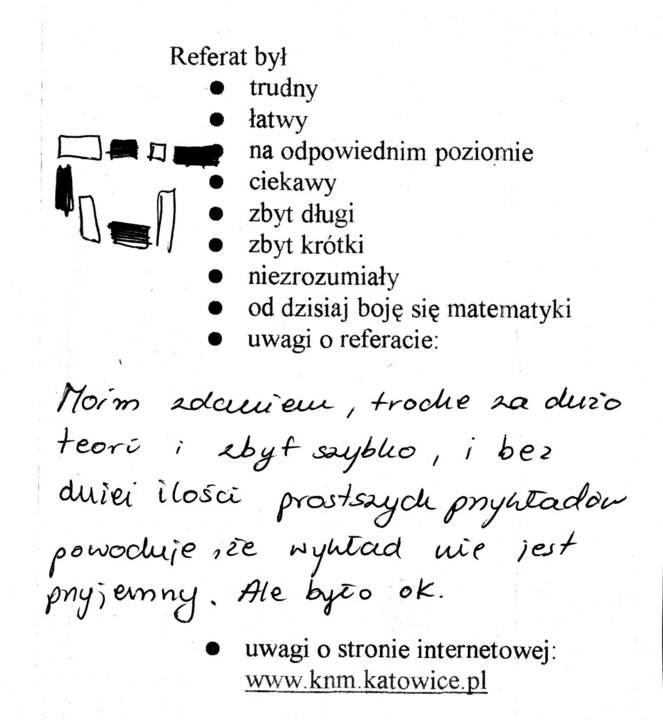 Referat był
● trudny
● łatwy
● na odpowiednim poziomie
● ciekawy
● zbyt długi
● zbyt krótki
● niezrozumiały
● od dzisiaj boję się matematyki
● uwagi o referacie:
Moim zdaniem, troche za dużo
teori i zbyt szybko, i bez
dużej ilości prostszych przykładów
powoduje, że wykład nie jest
przyjemny. Ale było ok.
● uwagi o stronie internetowej:
www.knm.katowice.pl